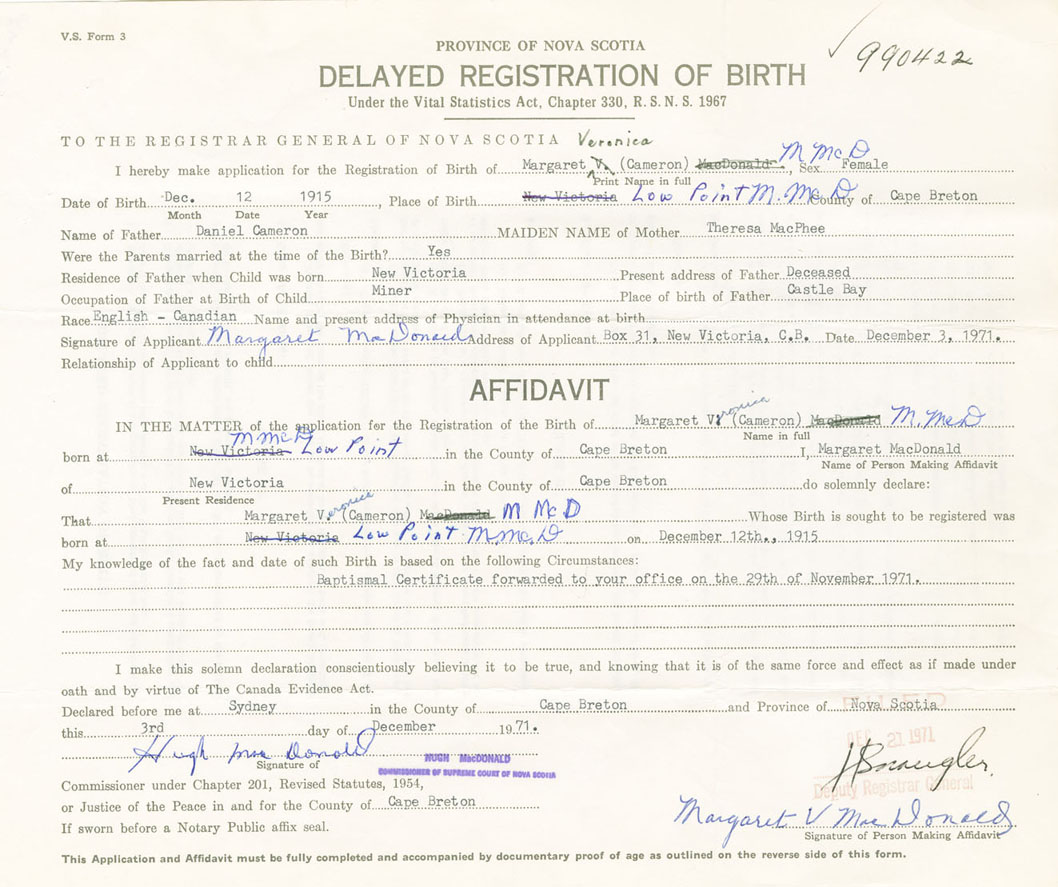 V.S. Form 3
990422
PROVINCE OF NOVA SCOTIA
DELAYED REGISTRATION OF BIRTH
Under the Vital Statistics Act, Chapter 330, R. S. N. S. 1967
TO THE REGISTRAR GENERAL OF NOVA SCOTIA Veronica
I hereby make application for the Registration of Birth of Margaret V. (Cameron) MacDonald M McD, Sex Female
Print Name in full
Date of Birth Dec. 12 1915, Place of Birth New Victoria Low Point M. McD County of Cape Breton
Month Date Year
Name of Father Daniel Cameron MAIDEN NAME of Mother Theresa MacPhee
Were the Parents married at the time of the Birth? Yes
Residence of Father when Child was born New Victoria Present address of Father Deceased
Occupation of Father at Birth of Child Miner Place of birth of Father Castle Bay
Race English - Canadian Name and present address of Physician in attendance at birth
Signature of Applicant Margaret MacDonald Address of Applicant Box 31, New Victoria, C.B. Date December 3, 1971.
Relationship of Applicant to child
AFFIDAVIT
IN THE MATTER of the application for the Registration of the Birth of Margaret Veronica (Cameron) MacDonald M. McD
Name in full
born at New Victoria M McD Low Point in the County of Cape Breton I, Margaret MacDonald
Name of Person Making Affidavit
of New Victoria in the County of Cape Breton do solemnly declare:
Present Residence
That Margaret Veronica (Cameron) MacDonald M McD Whose Birth is sought to be registered was
born at New Victoria Low Point M. Mc. D on December 12th., 1915
My knowledge of the fact and date of such Birth is based on the following Circumstances:
Baptismal Certificate forwarded to your office on the 29th of November 1971.
I make this solemn declaration conscientiously believing it to be true, and knowing that it is of the same force and effect as if made under
oath and by virtue of The Canada Evidence Act.
Declared before me at Sydney in the County of Cape Breton and Province of Nova Scotia
FILED
this 3rd day of December 1971.
DEC 21 1971
Hugh MacDonald
HUGH MacDONALD
Signature of
COMMISSIONER OF SUPREME COURT OF NOVA SCOTIA
Deputy Registrar General
Commissioner under Chapter 201, Revised Statutes, 1954,
or Justice of the Peace in and for the County of Cape Breton
Margaret V MacDonald
If sworn before a Notary Public affix seal.
Signature of Person Making Affidavit
This Application and Affidavit must be fully completed and accompanied by documentary proof of age as outlined on the reverse side of this form.